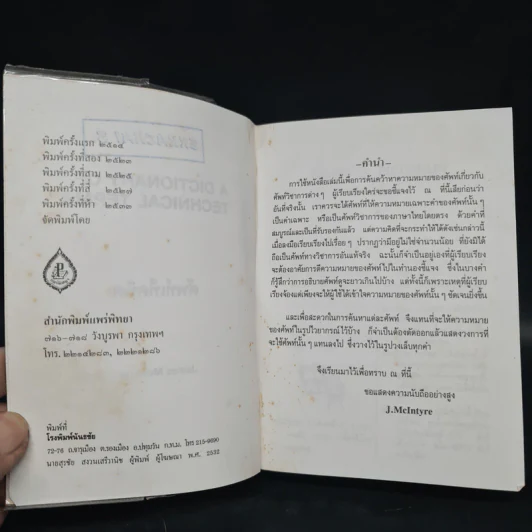 พิมพ์ครั้งแรก ๒๕๑๔
พิมพ์ครั้งที่สอง ๒๕๒๓
พิมพ์ครั้งที่สาม ๒๕๒๕
พิมพ์ครั้งที่สี่ ๒๕๒๗
พิมพ์ครั้งที่ห้า ๒๕๓๓
จัดพิมพ์โดย
สำนักพิมพ์แพร่พิทยา
๗๑๖-๗๑๘ วังบูรพา กรุงเทพฯ
โทร. ๒๒๑๔๒๘๓, ๒๒๒๑๒๘๖
พิมพ์ที่
โรงพิมพ์นันทชัย
72-76 ถ.จารุเมือง ต.รองเมือง อ.ปทุมวัน ก.ท.ม. โทร 215-9690
นายสุรชัย สงวนเสรีวานิช ผู้พิมพ์ ผู้โฆษณา พ.ศ. 2532
–คำนำ–
การใช้หนังสือเล่มนี้เพื่อการค้นคว้าหาความหมายของศัพท์เกี่ยวกับ
ศัพท์วิชาการต่าง ๆ ผู้เรียบเรียงใคร่จะขอชี้แจงไว้ ณ ที่นี้เสียก่อนว่า
อันที่จริงนั้น เราควรจะได้ศัพท์ที่ให้ความหมายเฉพาะคำของศัพท์นั้น ๆ
เป็นคำเฉพาะ หรือเป็นศัพท์วิชาการของภาษาไทยโดยตรง ด้วยคำที่
สมบูรณ์และเป็นที่รับรองกันแล้ว แต่ความคิดที่จะกระทำให้ได้ดังเช่นกล่าวนี้
เมื่อลงมือเรียบเรียงไปเรื่อย ๆ ปรากฏว่ามีอยู่ไม่ใช่จำนวนน้อย ที่ยังมิได้
ถือเป็นศัพท์ทางวิชาการอันแท้จริง ฉะนั้นก็จำเป็นอยู่เองที่ผู้เรียบเรียง
จะต้องอาศัยการตีความหมายของศัพท์ไปในทำนองชี้แจง ซึ่งในบางคำ
ก็รู้สึกว่าการอธิบายศัพท์ดูจะยาวเกินไปบ้าง แต่ทั้งนี้ก็เพราะเหตุที่ผู้เรียบ
เรียงจ้องแต่เพียงจะให้ผู้ใช้ได้เข้าใจความหมายของศัพท์นั้น ๆ ชัดเจนยิ่งขึ้น
และเพื่อสะดวกในการค้นหาแต่ละศัพท์ จึงแทนที่จะให้ความหมาย
ของศัพท์ในรูปไวยากรณ์ไว้บ้าง ก็จำเป็นต้องตัดออกแล้วแสดงวงการที่
จะใช้ศัพท์นั้น ๆ แทนลงไป ซึ่งวางไว้ในรูปวงเล็บทุกคำ
จึงเรียนมาไว้เพื่อทราบ ณ ที่นี้
ขอแสดงความนับถืออย่างสูง
J.McIntyre